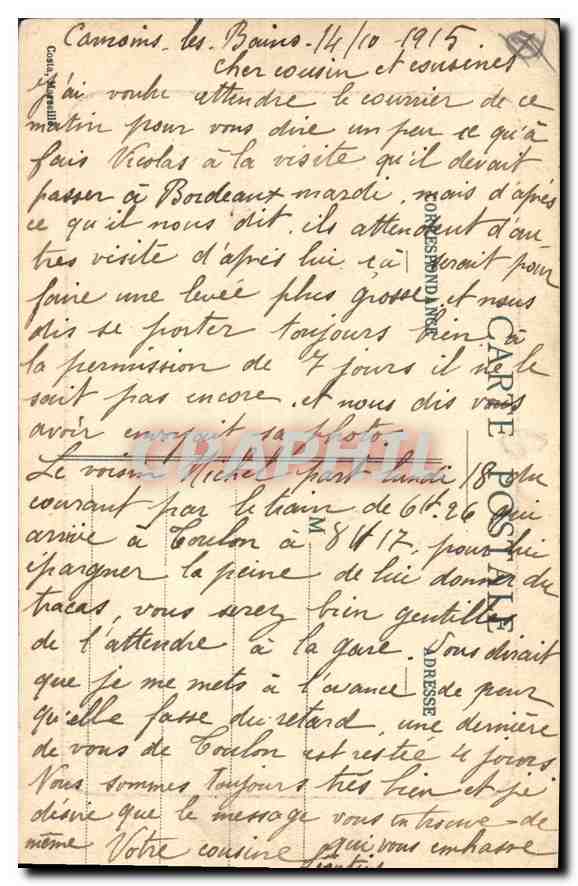 Camoins-les-Bains-14/10-1915
Cher cousin et cousines
J'ai voulu attendre le courrier de ce
matin pour vous dire un peu ce qu'à
fais Nicolas à la visite qu'il devait
passer à Bordeaux mardi, mais d'après
ce qu'il nous dit. ils attendent d'au-
tres visite d'après lui çà serait pour
faire une levée plus grosse, et nous
dis se porter toujours bien à
la permission de 7 jours il ne le
sait pas encore. et nous dis vous
avoir envoyait sa photo.
Le voisin Michel part lundi 18 du
courant par le train de 6H.26 qui
arrive à Toulon à 8H17, pour lui
épargner la peine de lui donner du
tracas, vous serez bien gentilles
de l'attendre à la gare. Vous dirait
que je me mets à l'avance de peur
qu'elle fasse du retard, une dernière
de vous de Toulon est restée 4 jours
Nous sommes toujours très bien et je
désire que le message vous en trouve de
même Votre cousine qui vous embrasse
CORRESPONDANCE
CARTE POSTALE
M
ADRESSE
Costa, Marseille
CPAPHIL